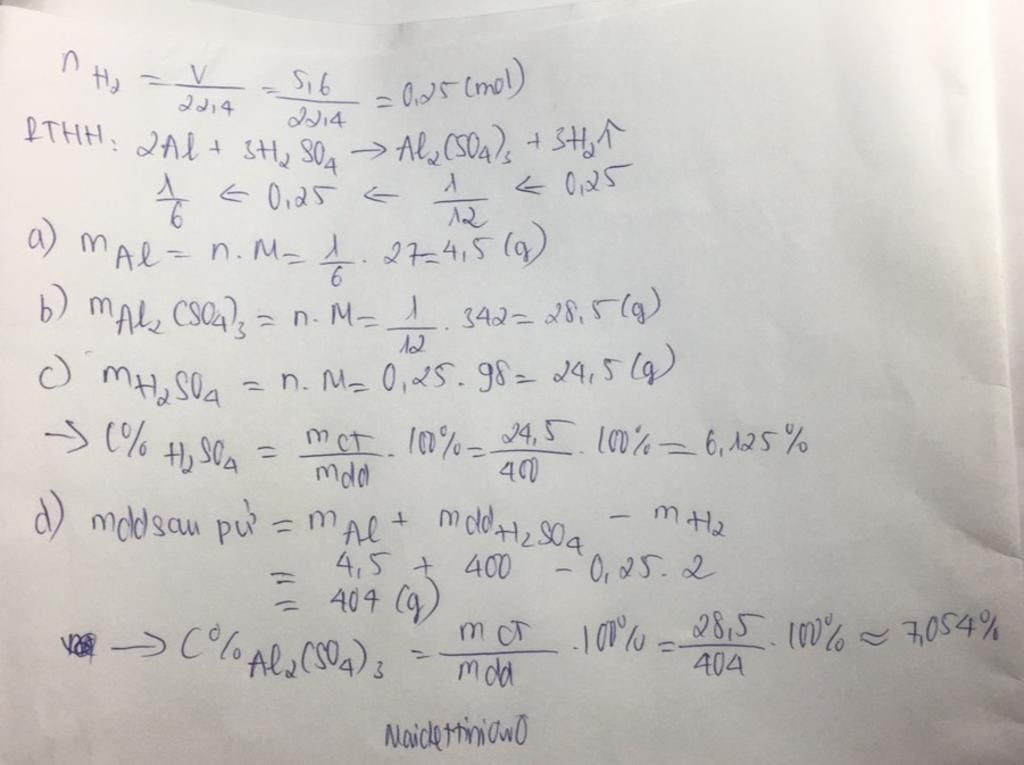 n H₂ = V/22,4 = 5,6/22,4 = 0,25 (mol)
PTHH: 2Al + 3H₂SO₄ → Al₂(SO₄)₃ + 3H₂↑
1/6 ← 0,25 ← 1/12 ← 0,25
a) mAl = n.M = 1/6 . 27 = 4,5 (g)
b) mAl₂(SO₄)₃ = n.M = 1/12 . 342 = 28,5 (g)
c) mH₂SO₄ = n.M = 0,25 . 98 = 24,5 (g)
→ C% H₂SO₄ = mct/mdd . 100% = 24,5/400 . 100% = 6,125%
d) mdd sau pứ = mAl + mdd H₂SO₄ - mH₂
= 4,5 + 400 - 0,25 . 2
= 404 (g)
→ C% Al₂(SO₄)₃ = mct/mdd . 100% = 28,5/404 . 100% ≈ 7,054%